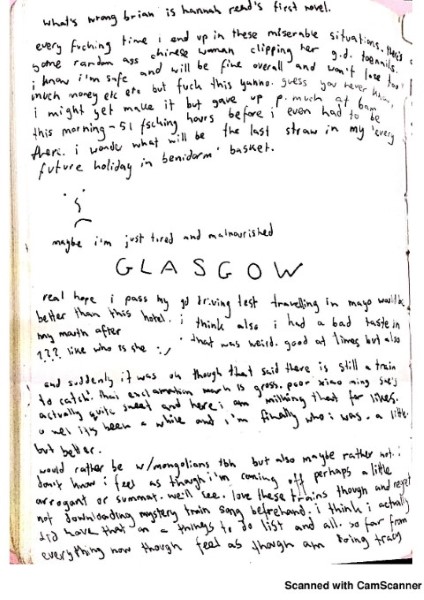 what's wrong brian is hannah read's first novel.
every fvcking time i end up in these miserable situations. there's a
some random ass chinese woman clipping her g.d. toenails.
i know i'm safe and will be fine overall and won't lose too
much money etc etc but fuck this yanno. guess you never know,
i might yet make it but gave up p. much at 6am
this morning - 51 fscking hours before i even had to be
there. i wonder what will be the last straw in my 'every
future holiday in benidorm' basket.
maybe i'm just tired and malnourished
GLASGOW
real hope i pass my gd driving test travelling in mayo would be
better than this hotel. i think also i had a bad taste in
my mouth after that was weird. good at times but also
??? like who is she :/
and suddenly it was on though that said there is still a train
to catch. that exclamation mark is gross. poor xiao ming she's
actually quite sweet and here i am milking that for likes.
it's been a while and i'm finally who i was. a little
but better.
would rather be w/ mongolians tbh but also maybe rather not. i
don't know i feel as though i'm coming off perhaps a little
arrogant or summat. we'll see. love these trains though and regret
not downloading mystery train song beforehand. i think i actually
did have that on a things to do list and all. so far from
everything now though feel as though am doing tracy
Scanned with CamScanner